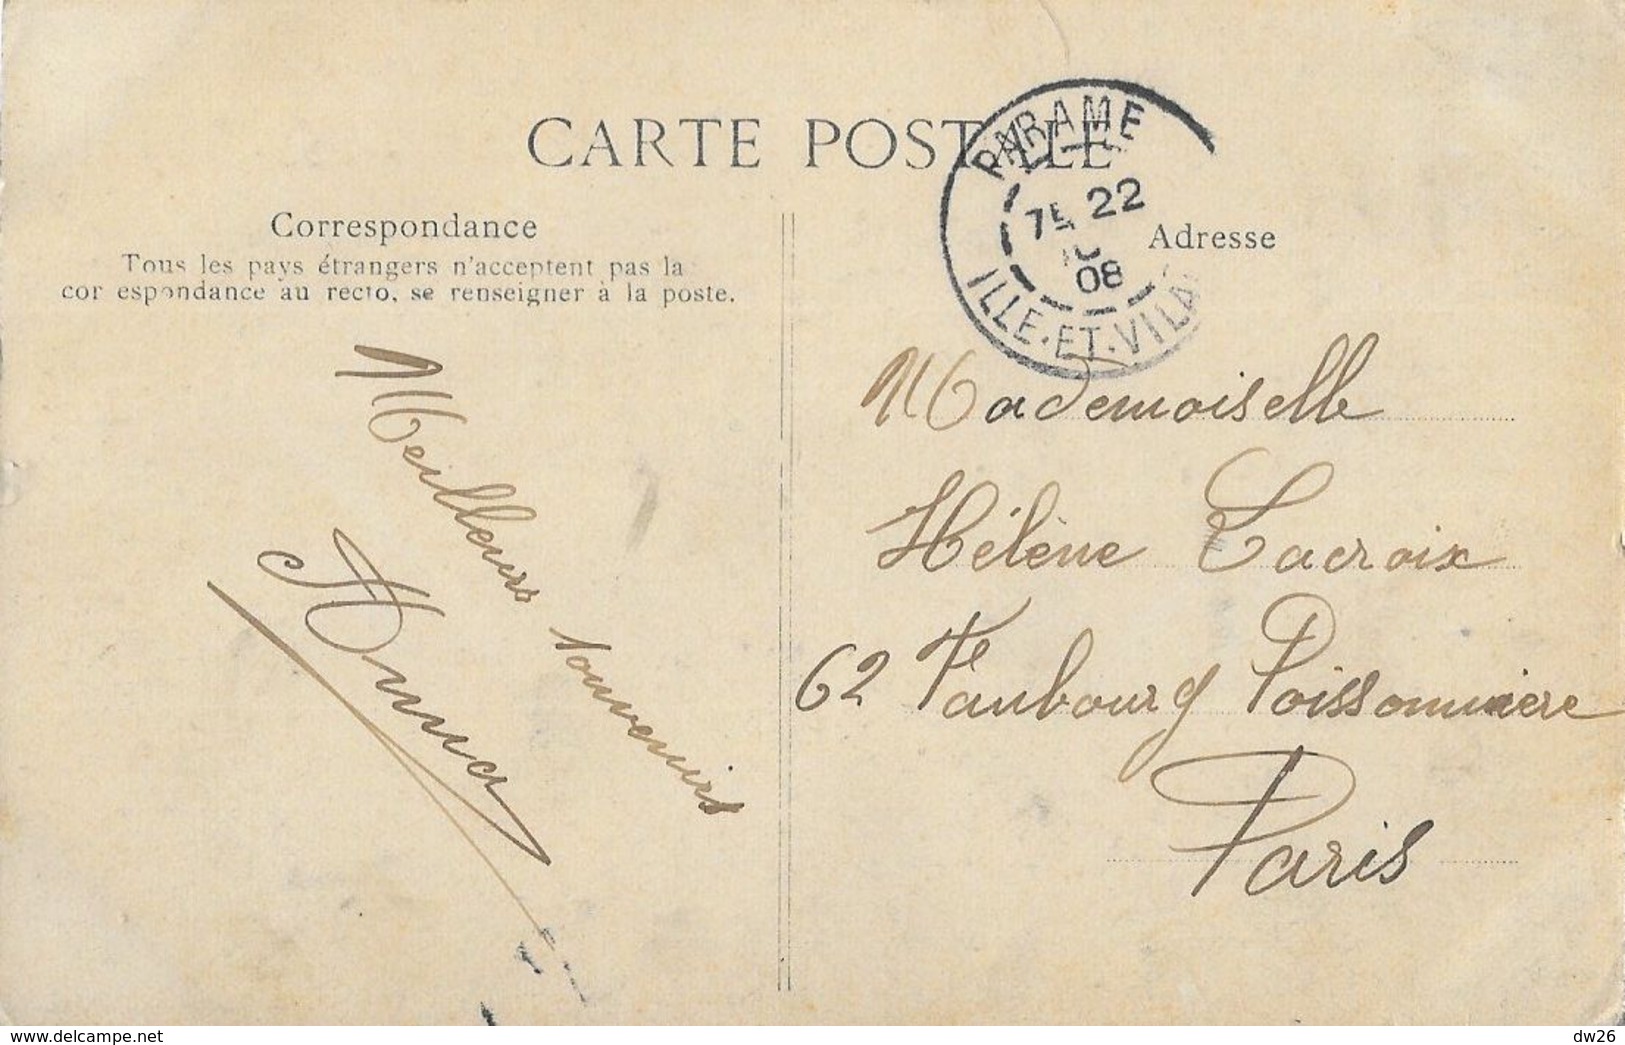 CARTE POSTALE
PARAME
22
08
ILLE-ET-VILA
Correspondance
Tous les pays étrangers n'acceptent pas la
cor espondance au recto, se renseigner à la poste.
Adresse
Meilleurs souvenirs
Anna
Mademoiselle
Hélène Lacroix
62 Faubourg Poissonnière
Paris
www.delcampe.net
dw26